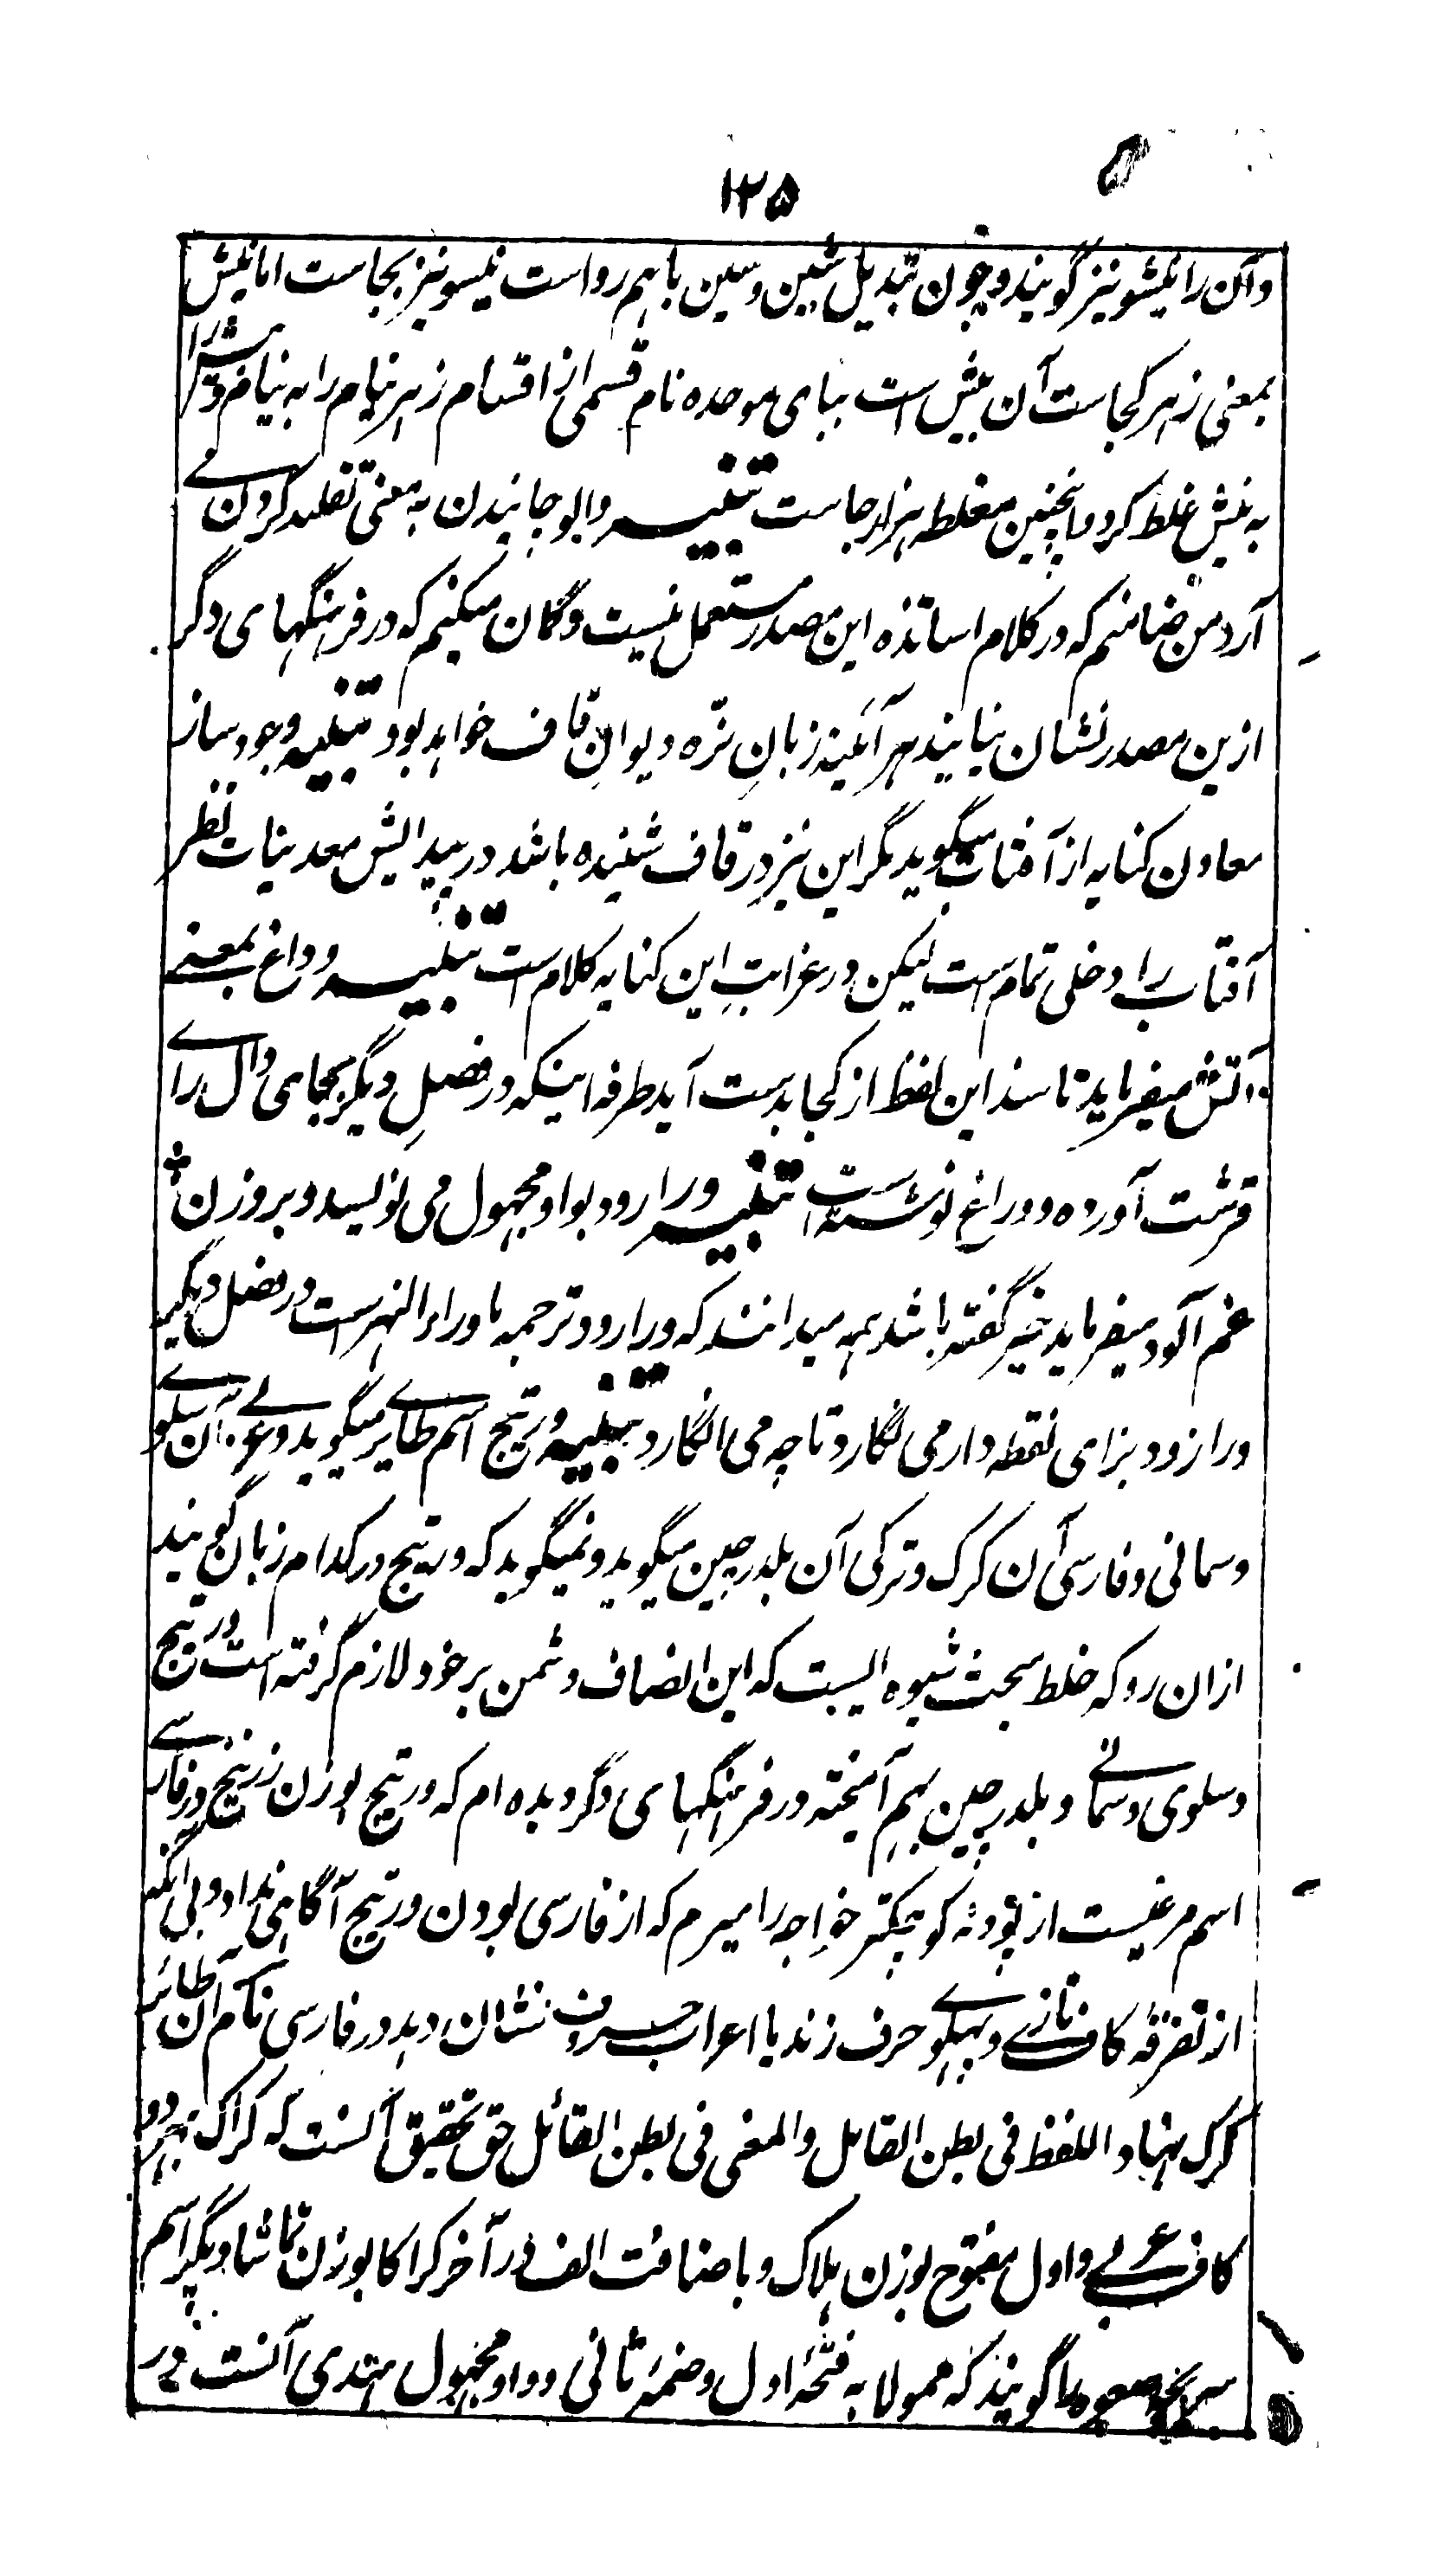 ۱۲۵
وآن را نیشو نیز گویند و چون تبدیل شین و سین باہم رواست نیسو نیز بجاست اما نیش
بمعنی زہر کجاست آن بیش است ببای موحدہ نام قسمی از اقسام زہر نیام را بہ نیام و بیش را
بہ نیش غلط کرد و اینچنین مغلطہ ہزار جاست تنبیہ والوجانیدن بہ معنی تقلید کردن مے
آرد من ضامنم کہ در کلام اساتذہ این مصدر مستعمل نیست و گمان میکنم کہ در فرہنگہای دگر
ازین مصدر نشان نیابند ہر آئینہ زبانِ نرّہ دیوانِ قاف خواہد بود تنبیہ وجود ساز
معاون کنایہ از آفتاب میگوید مگر این نیز در قاف شنیدہ باشد در پیدایش معدنیات نظر
آفتاب را دخلی تمام ست لیکن در غرابتِ این کنایہ کلام ست تنبیہ وداغ بمعنے
آتش میفرماید تا سند این لفظ از کجا بدست آید طرفہ اینکہ در فصلِ دیگر بجای دال رائے
قرشت آوردہ و وراغ نوشتہ است تنبیہ ورارود بواو مجہول می نویسد و بر وزن
غم آلود میفرماید خیر گفتہ باشد ہمہ میدانند کہ ورارود ترجمہ ماوراء النہرست در فصل دیگر
ورازود بزای نقطہ دار می نگارد تا چہ می انگارد تنبیہ ورتیج اسم طایرے میگوید و عربے آن سلوے
و سمانی و فارسی آن کرک و ترکی آن بلدرچین میگوید و نمیگوید کہ ورتیج در کدام زبان گویند
ازان رو کہ خلط مبحث شیوہ ایست کہ این انصاف دشمن بر خود لازم گرفتہ است ورتیج
و سلوی و سمانے و بلدرچین بہم آمیختہ در فرہنگہای دگر دیدہ ام کہ ورتیج بوزن زرنیخ در فارسے
اسم مرغیست از بودنہ کوچکتر خواجہ را میرم کہ از فارسی بودن ورتیج آگاہی نداد و بی آنکہ
از تفرقہ کاف تازے و حرف زند یا اعراب حروف نشان دہد در فارسی نام آن طائر
کرک نہاد اللفظ فی بطن القائل والمعنی فی بطن القائل حق تحقیق آنست کہ کراک بہر دو
کاف عربے و اول مفتوح بوزن ہلاک و باضافت الف در آخر کراکا بوزن تماشا و دیگر اسم
صعوہ را گویند کہ ممولا بہ فتحۂ اول و ضمۂ ثانی و واو مجہول ہندی آنست و در